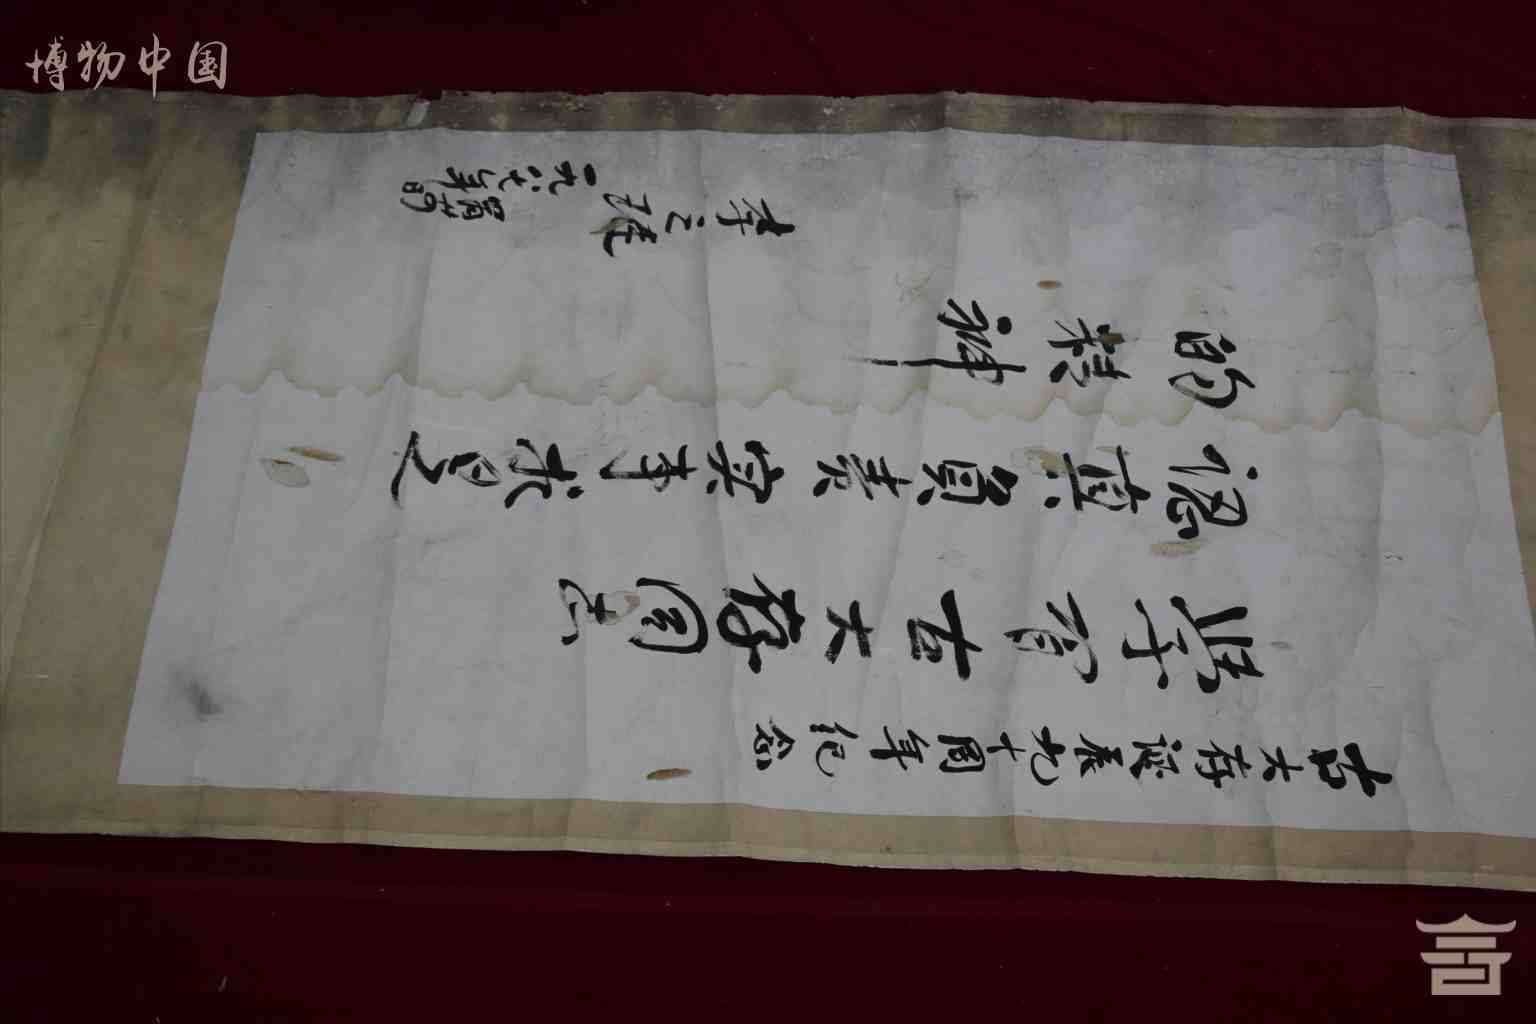 博物中国
古大存诞辰九十周年纪念
学習古大存同志
認真負責实事求是
的精神
李之琏
一九八七年